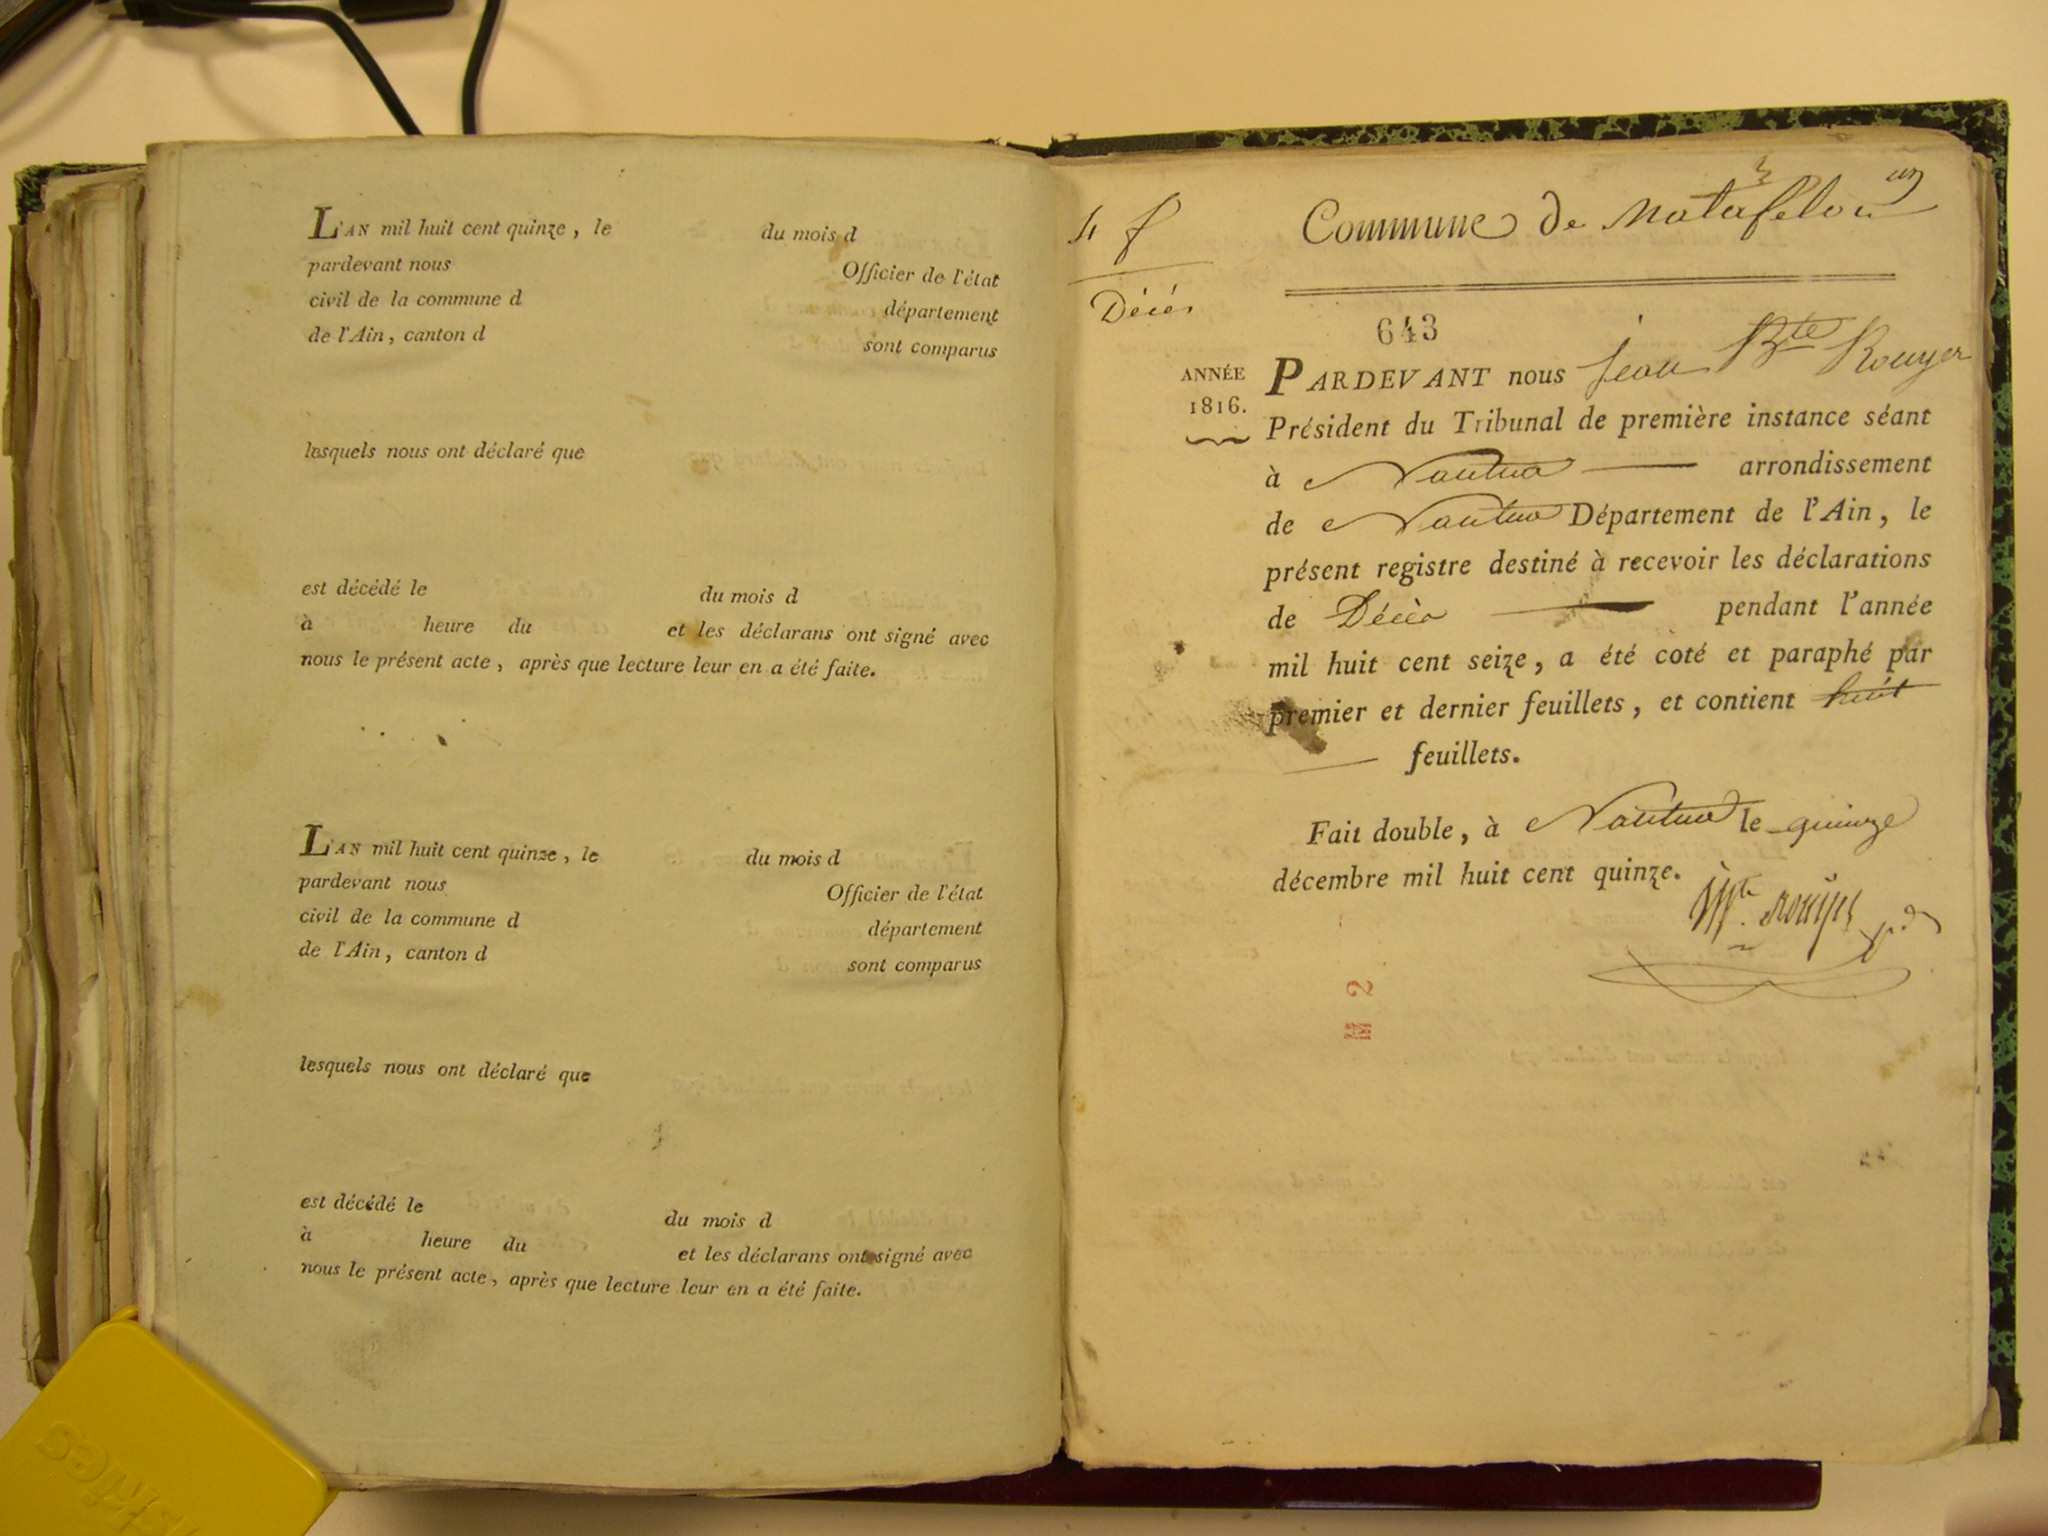 L'AN mil huit cent quinze, le du mois d
pardevant nous Officier de l'état
civil de la commune d département
de l'Ain, canton d sont comparus
lesquels nous ont déclaré que
est décédé le du mois d
à heure du et les déclarans ont signé avec
nous le présent acte, après que lecture leur en a été faite.
L'AN mil huit cent quinze, le du mois d
pardevant nous Officier de l'état
civil de la commune d département
de l'Ain, canton d sont comparus
lesquels nous ont déclaré que
est décédé le du mois d
à heure du et les déclarans ont signé avec
nous le présent acte, après que lecture leur en a été faite.
4 f
Décés
un
Commune de Matafelon
643
ANNÉE
1816.
PARDEVANT nous Jean Bte Rouyer
Président du Tribunal de première instance séant
à Nantua arrondissement
de Nantua Département de l'Ain, le
présent registre destiné à recevoir les déclarations
de Décès pendant l'année
mil huit cent seize, a été coté et paraphé par
premier et dernier feuillets, et contient huit
feuillets.
Fait double, à Nantua le quinze
décembre mil huit cent quinze.
Bte Rouyer
M 2